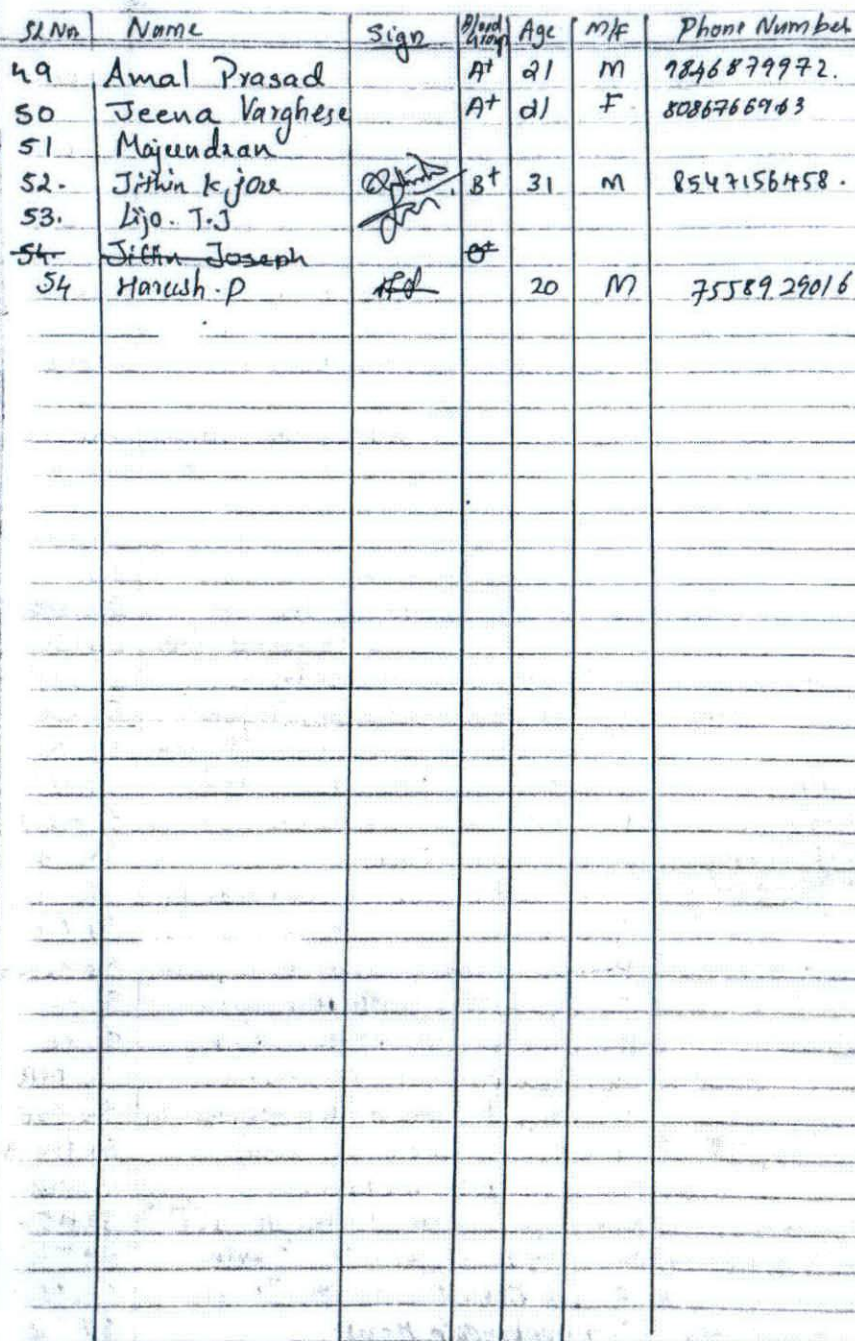 Sl No Name Sign Blood Group Age M/F Phone Number
49 Amal Prasad A+ 21 M 9846879972.
50 Jeena Varghese A+ 21 F 8086766963
51 Majeendran
52. Jithin K jose B+ 31 M 8547156458.
53. Lijo. T.J
54. Jithin Joseph O+
54 Hareesh.P 20 M 7558929016